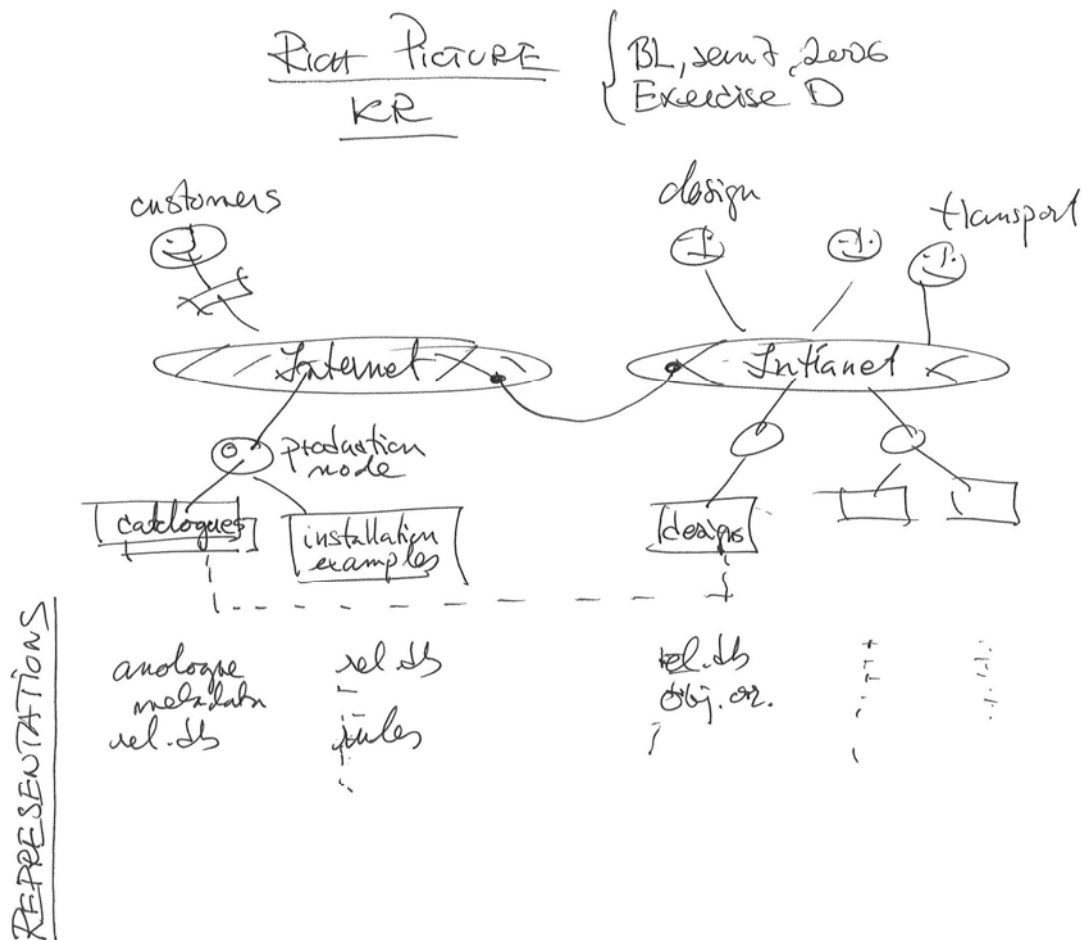 RICH PICTURE
KR
BL, sem 7, 2006
Exercise D
customers
design
transport
Internet
Intranet
production
node
catalogues
installation
examples
designs
REPRESENTATIONS
analogue
metadata
rel.db
rel.db
rules
rel.db
obj.or.